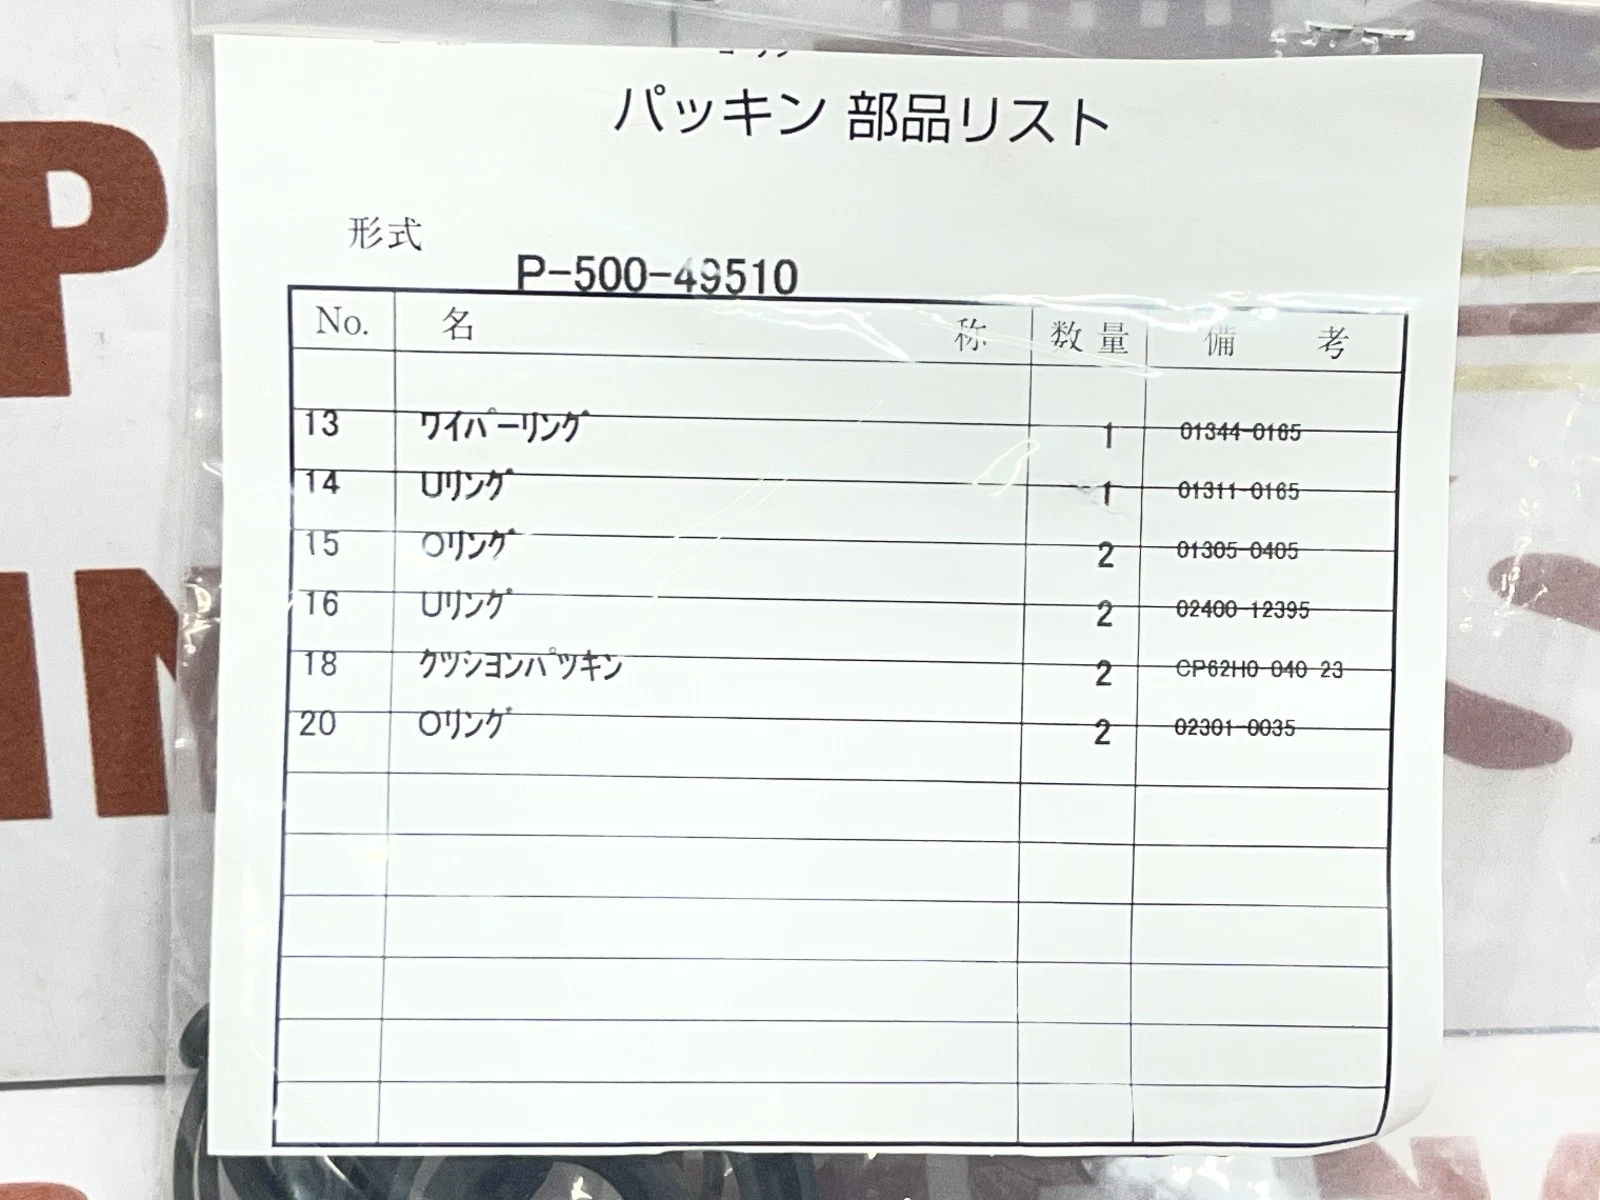 パッキン 部品リスト
形式
P-500-49510
No. 名 称 数 量 備 考
13 ワイパーリング 1 01344-0165
14 Uリング 1 01311-0165
15 Oリング 2 01305-0405
16 Uリング 2 02400-12395
18 クツシヨンパツキン 2 CP62H0-040-23
20 Oリング 2 02301-0035